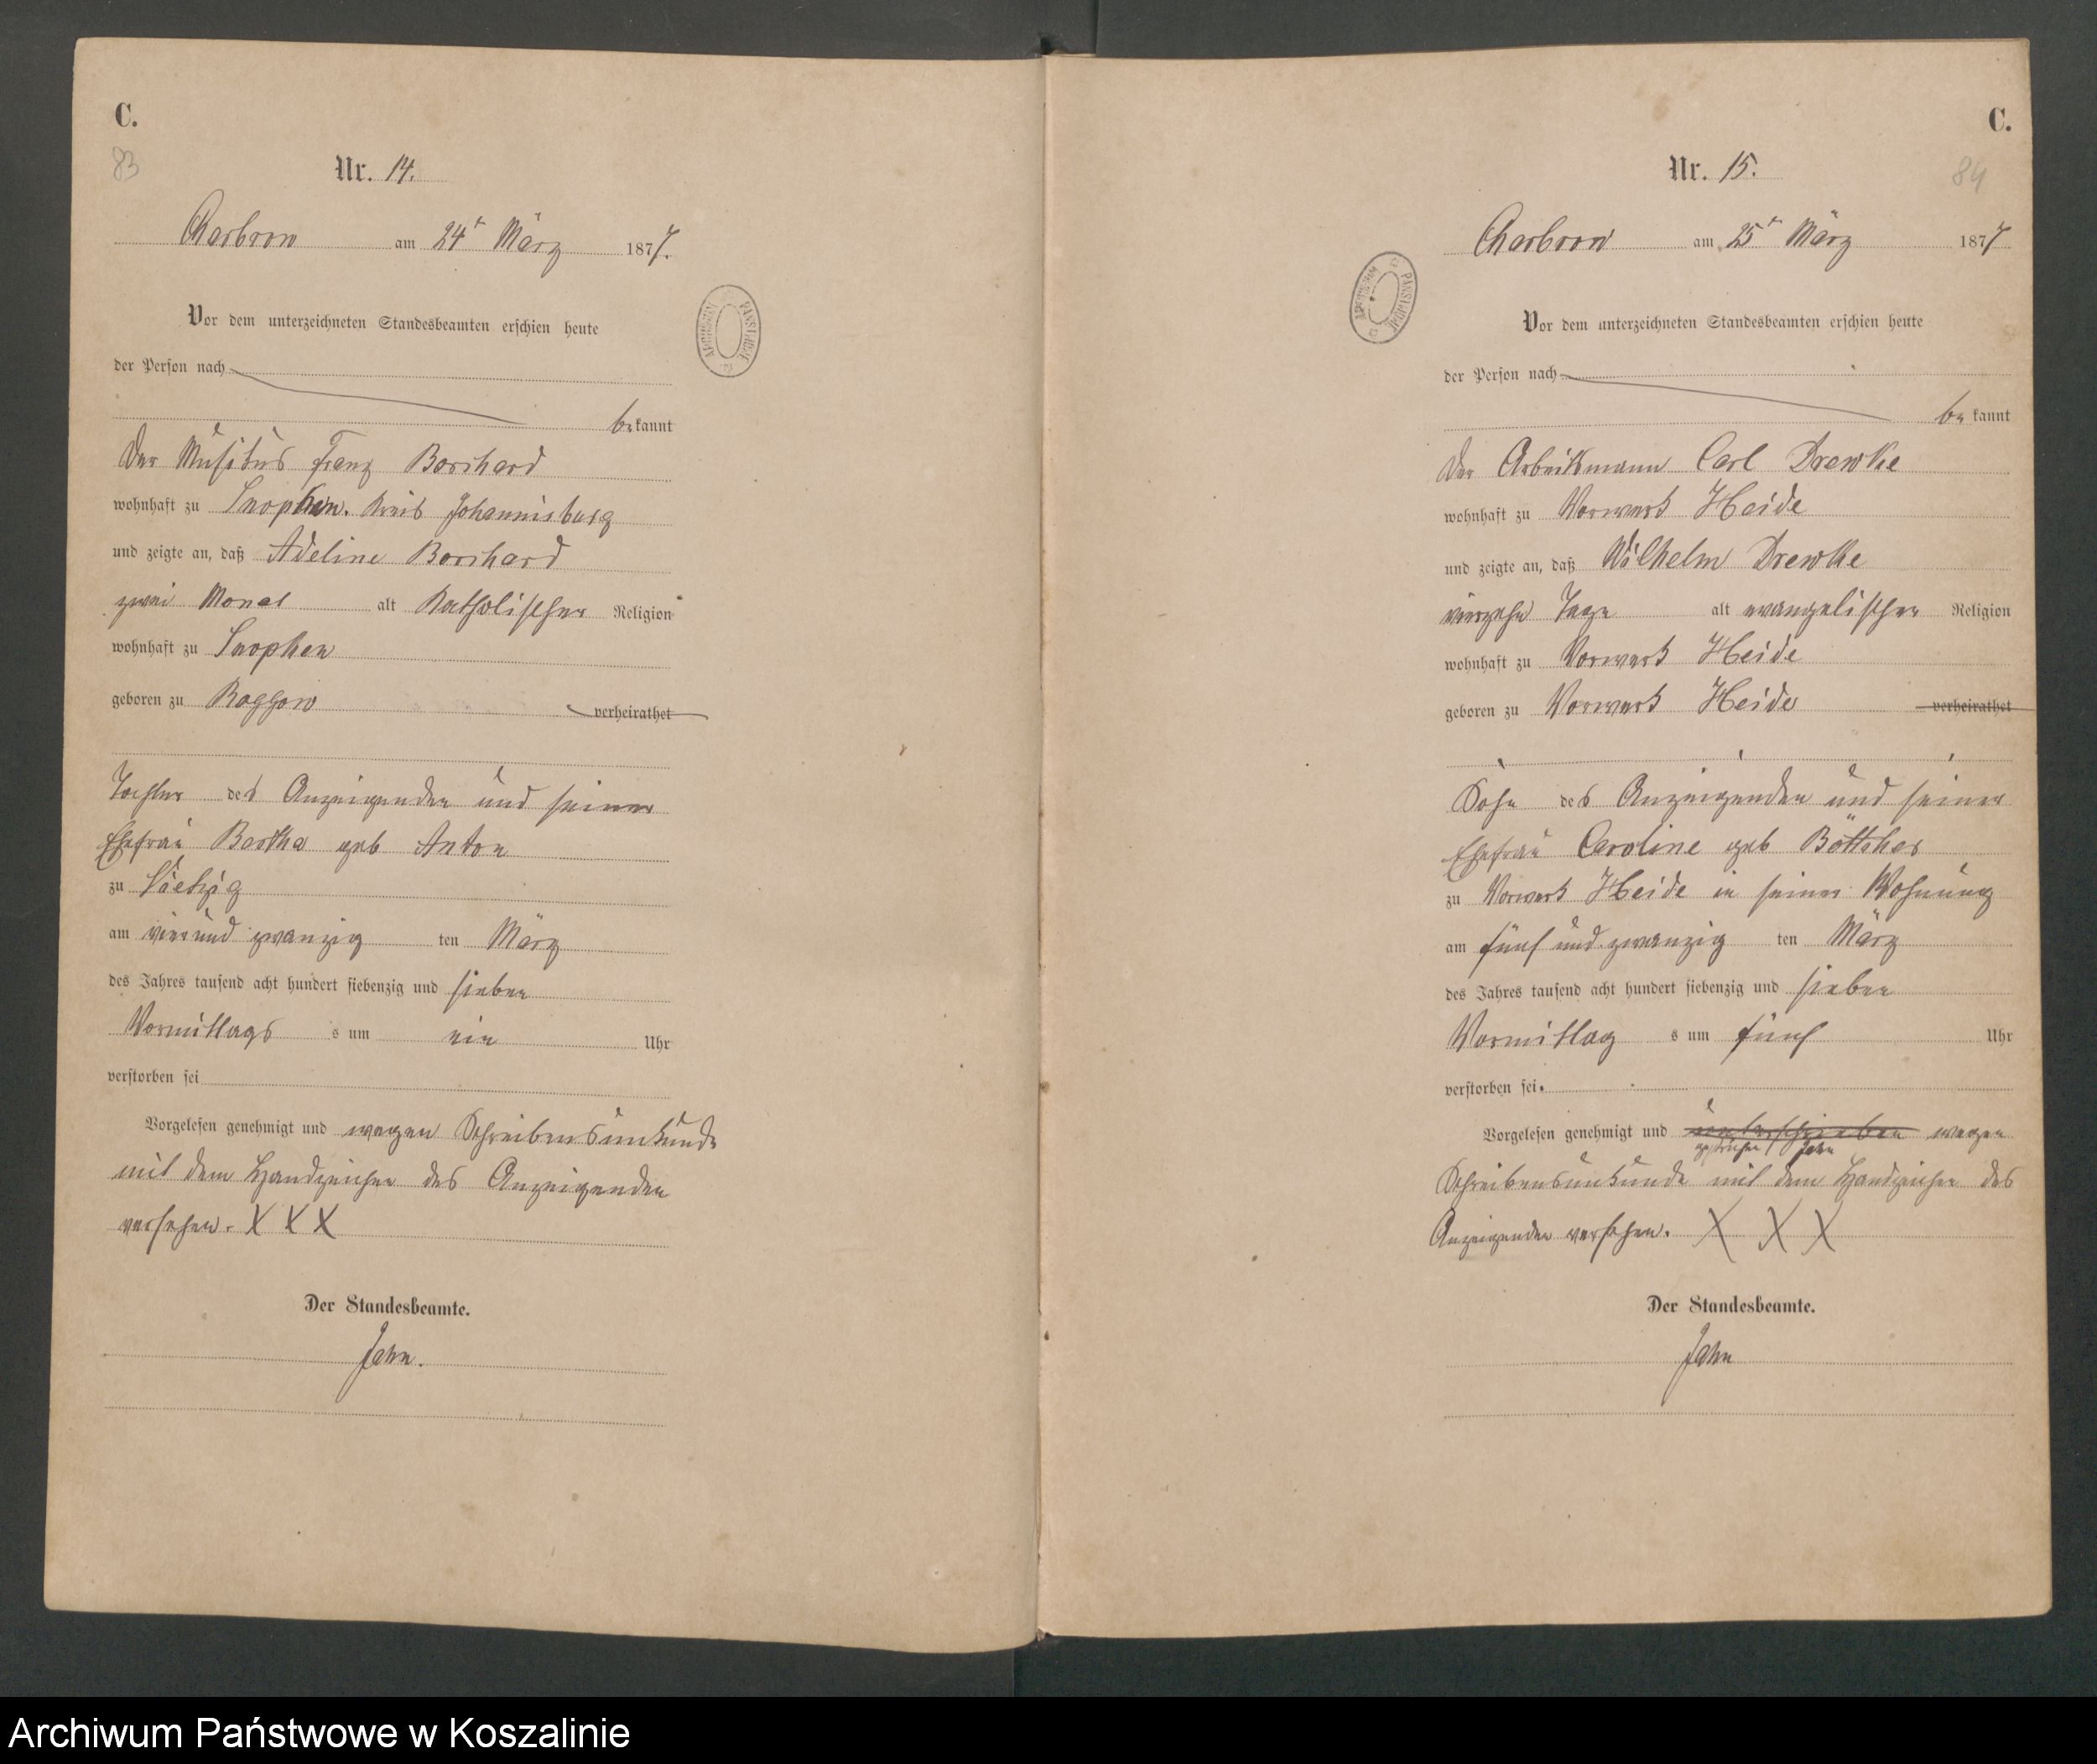 C.
83
Nr. 14.
Charbrow am 24t März 1877.
Vor dem unterzeichneten Standesbeamten erschien heute
der Person nach
bekannt
Der Musikus Franz Borchard
wohnhaft zu Snopken. Kreis Johannisburg
und zeigte an, daß Adeline Borchard
zwei Monat alt katholischer Religion
wohnhaft zu Snopken
geboren zu Roggow verheirathet
Tochter des Anzeigenden und seiner
Ehefrau Bertha geb Anton
zu
am vierund zwanzig ten März
des Jahres tausend acht hundert siebenzig und sieben
Vormittags s um ein Uhr
verstorben sei
Vorgelesen genehmigt und wegen Schreibensunkunde
mit dem Handzeichen des Anzeigenden
versehen. X X X
Der Standesbeamte.
Jahn.
C.
84
Nr. 15.
Charbrow am 25t März 1877
Vor dem unterzeichneten Standesbeamten erschien heute
der Person nach
bekannt
Der Arbeitsmann Carl Drewke
wohnhaft zu Vorwerk Heide
und zeigte an, daß Wilhelm Drewke
vierzehn Tage alt evangelischer Religion
wohnhaft zu Vorwerk Heide
geboren zu Vorwerk Heide verheirathet
Sohn des Anzeigenden und seiner
Ehefrau Caroline geb Böttcher
zu Vorwerk Heide in seiner Wohnung
am fünf und zwanzig ten März
des Jahres tausend acht hundert siebenzig und sieben
Vormittag s um fünf Uhr
verstorben sei.
Vorgelesen genehmigt und unterschrieben wegen
gestrichen Jahn
Schreibensunkunde mit dem Handzeichen des
Anzeigenden versehen. X X X
Der Standesbeamte.
Jahn
Archiwum Państwowe w Koszalinie